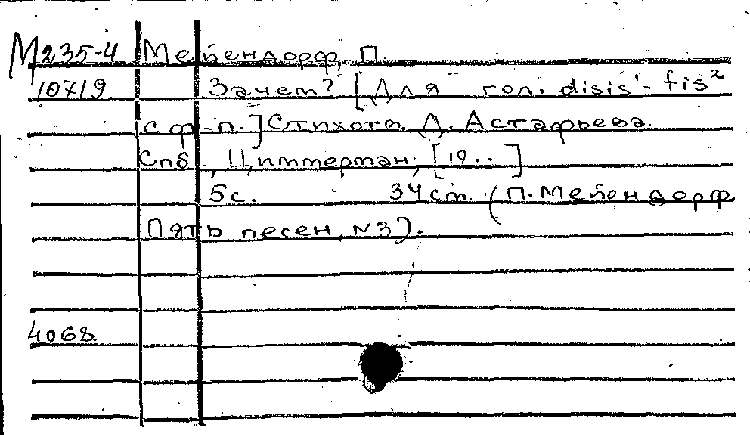 М 235-4 Мейендорф, П.
10719 Зачем? [Для гол. disis¹- fis²
с ф-п.] Стихотв. Д. Астафьева.
Спб., Циммерман, [19..]
5с. 34 ст. (П. Мейендорф
Пять песен, №3).
4068